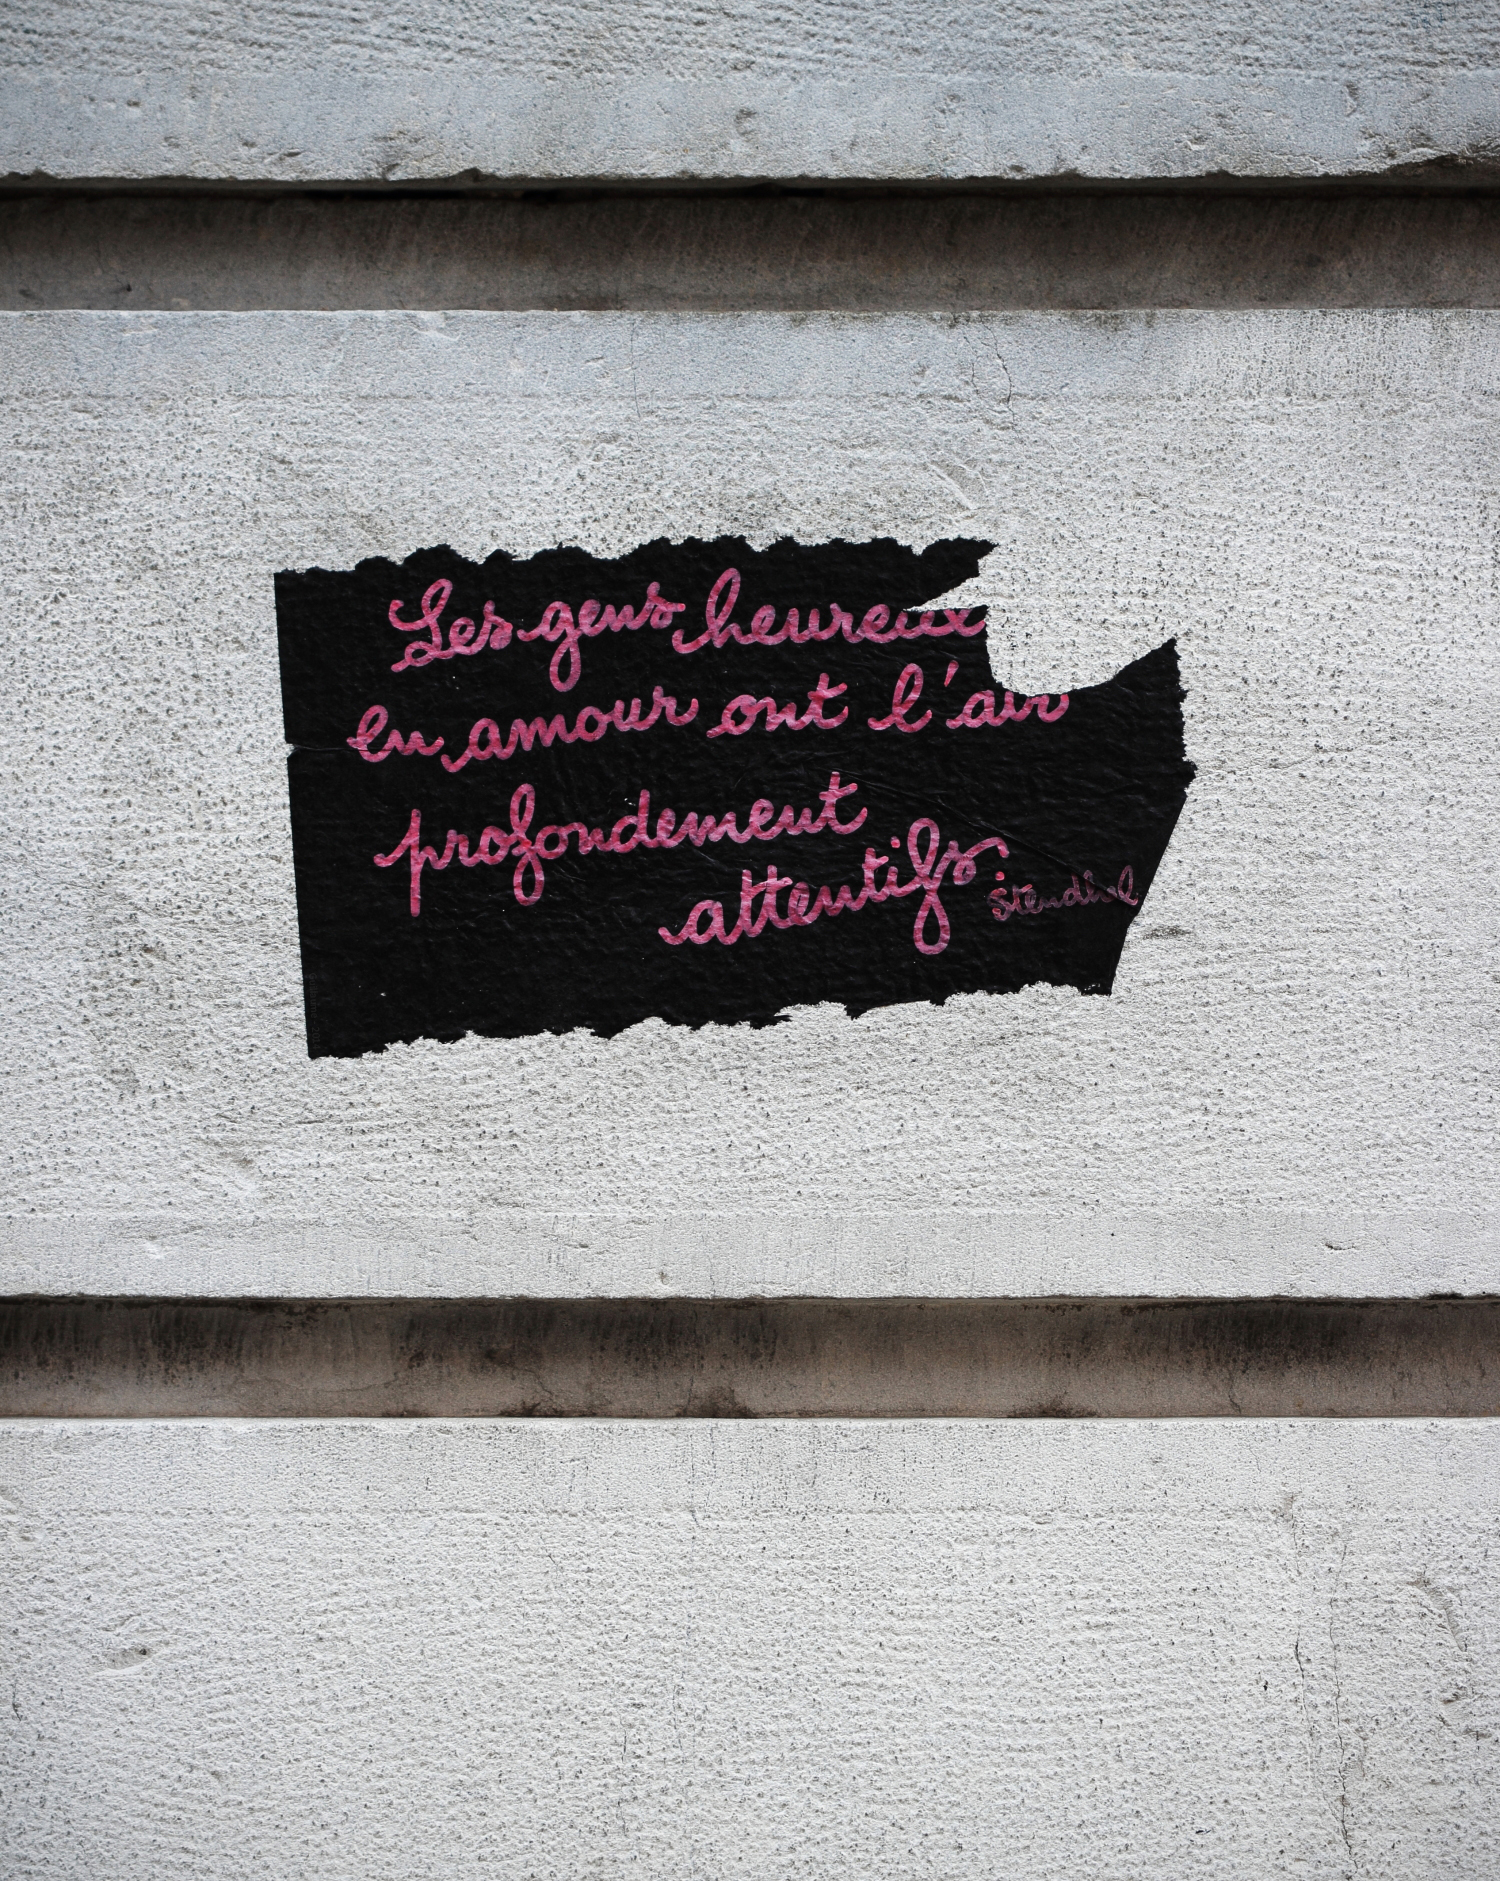 Les gens heureux
en amour ont l'air
profondement
attentifs.
Stendhal